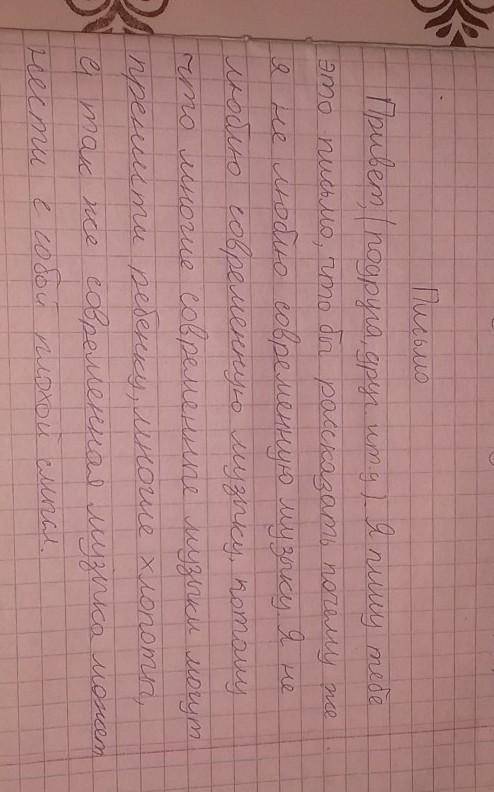 Письмо
Привет, (подруга, друг и т.д). Я пишу тебе
это письмо, что бы рассказать почему же
я не люблю современную музыку. Я не
люблю современную музыку, потому
что многие современные музыки могут
ребенку, многие хлопотна,
а так же современная музыка может
нести с собой плохой смысл.